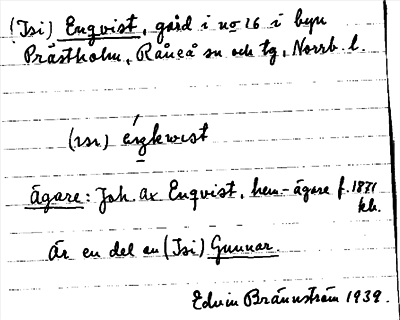 (Isi) Enqvist, gård i no 26 i byn
Prästholm, Råneå sn och tg, Norrb. l.
(ɪsɪ) éŋkwɪst
ägare: Joh. Ax Enqvist, hem-ägare f. 1871
kb.
Är en del av (Isi) Gunnar.
Edvin Brännström 1939.